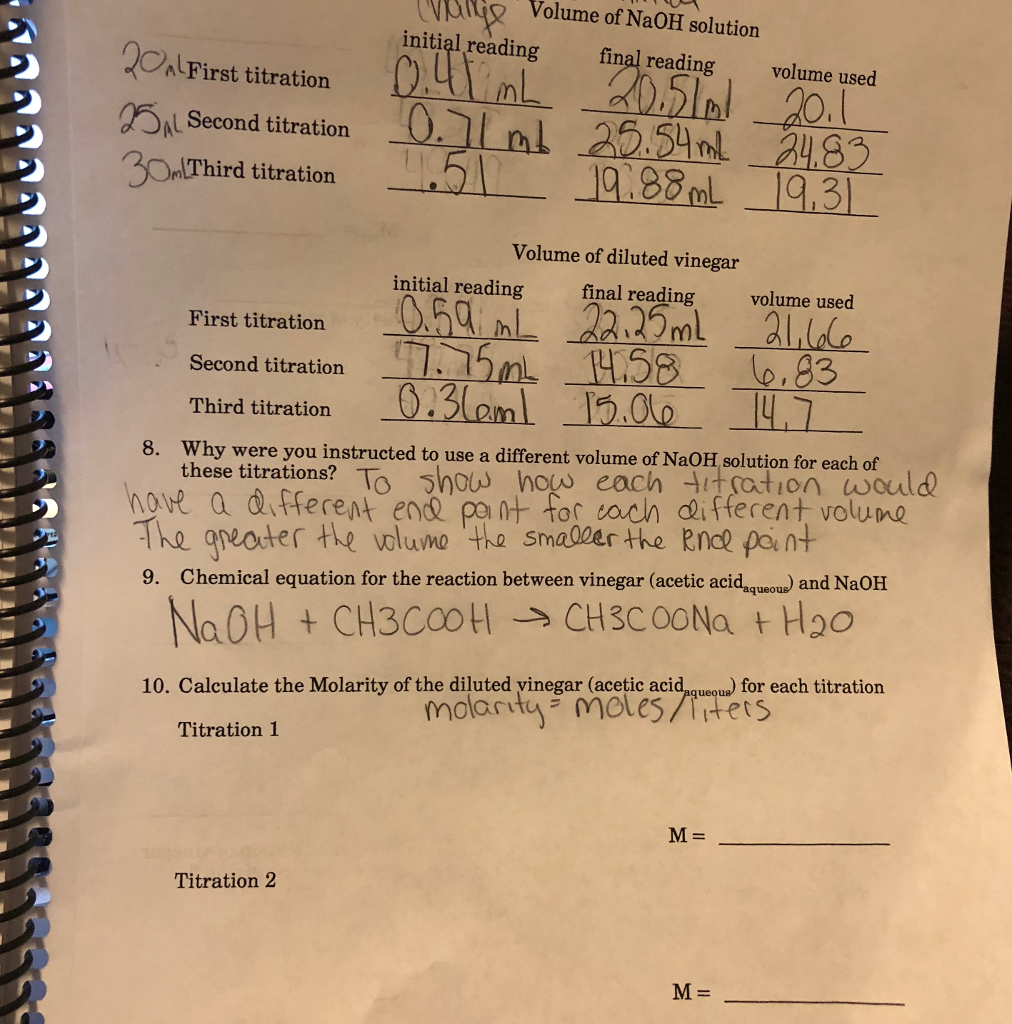 change Volume of NaOH solution
initial reading final reading volume used
20mL First titration 0.41 mL 20.51ml 20.1
25mL Second titration 0.71 mL 25.54mL 24.83
30mL Third titration .51 19.88mL 19.31
Volume of diluted vinegar
initial reading final reading volume used
First titration 0.59 mL 22.25mL 21.66
Second titration 7.75mL 14.58 6.83
Third titration 0.36ml 15.06 14.7
8. Why were you instructed to use a different volume of NaOH solution for each of
these titrations? To show how each titration would
have a different end point for each different volume
The greater the volume the smaller the end point
9. Chemical equation for the reaction between vinegar (acetic acid aqueous) and NaOH
NaOH + CH3COOH → CH3COONa + H2O
10. Calculate the Molarity of the diluted vinegar (acetic acid aqueous) for each titration
molarity = moles/liters
Titration 1
M =
Titration 2
M =